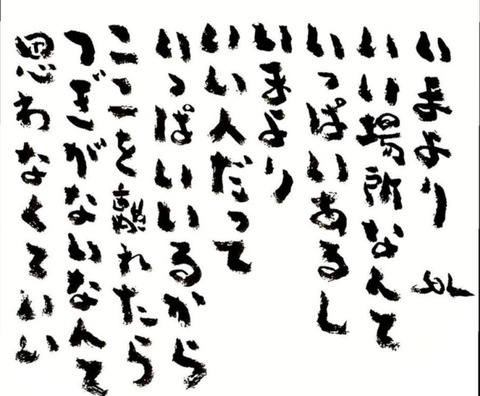 いまより
いい場所なんて
いっぱいあるし
いまより
いい人だって
いっぱいいるから
ここを離れたら
つぎがないなんて
思わなくていい